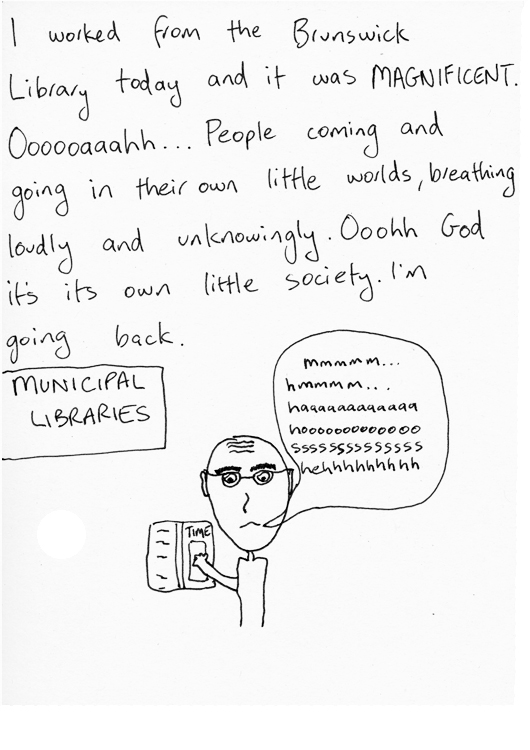 I worked from the Brunswick
Library today and it was MAGNIFICENT.
Oooooaaahh... People coming and
going in their own little worlds, breathing
loudly and unknowingly. Ooohh God
it's its own little society. I'm
going back.
MUNICIPAL
LIBRARIES
mmmmm...
hmmmm...
haaaaaaaaaaaa
hoooooooooooo
sssssssssssss
hehhhhhhhhh
TIME